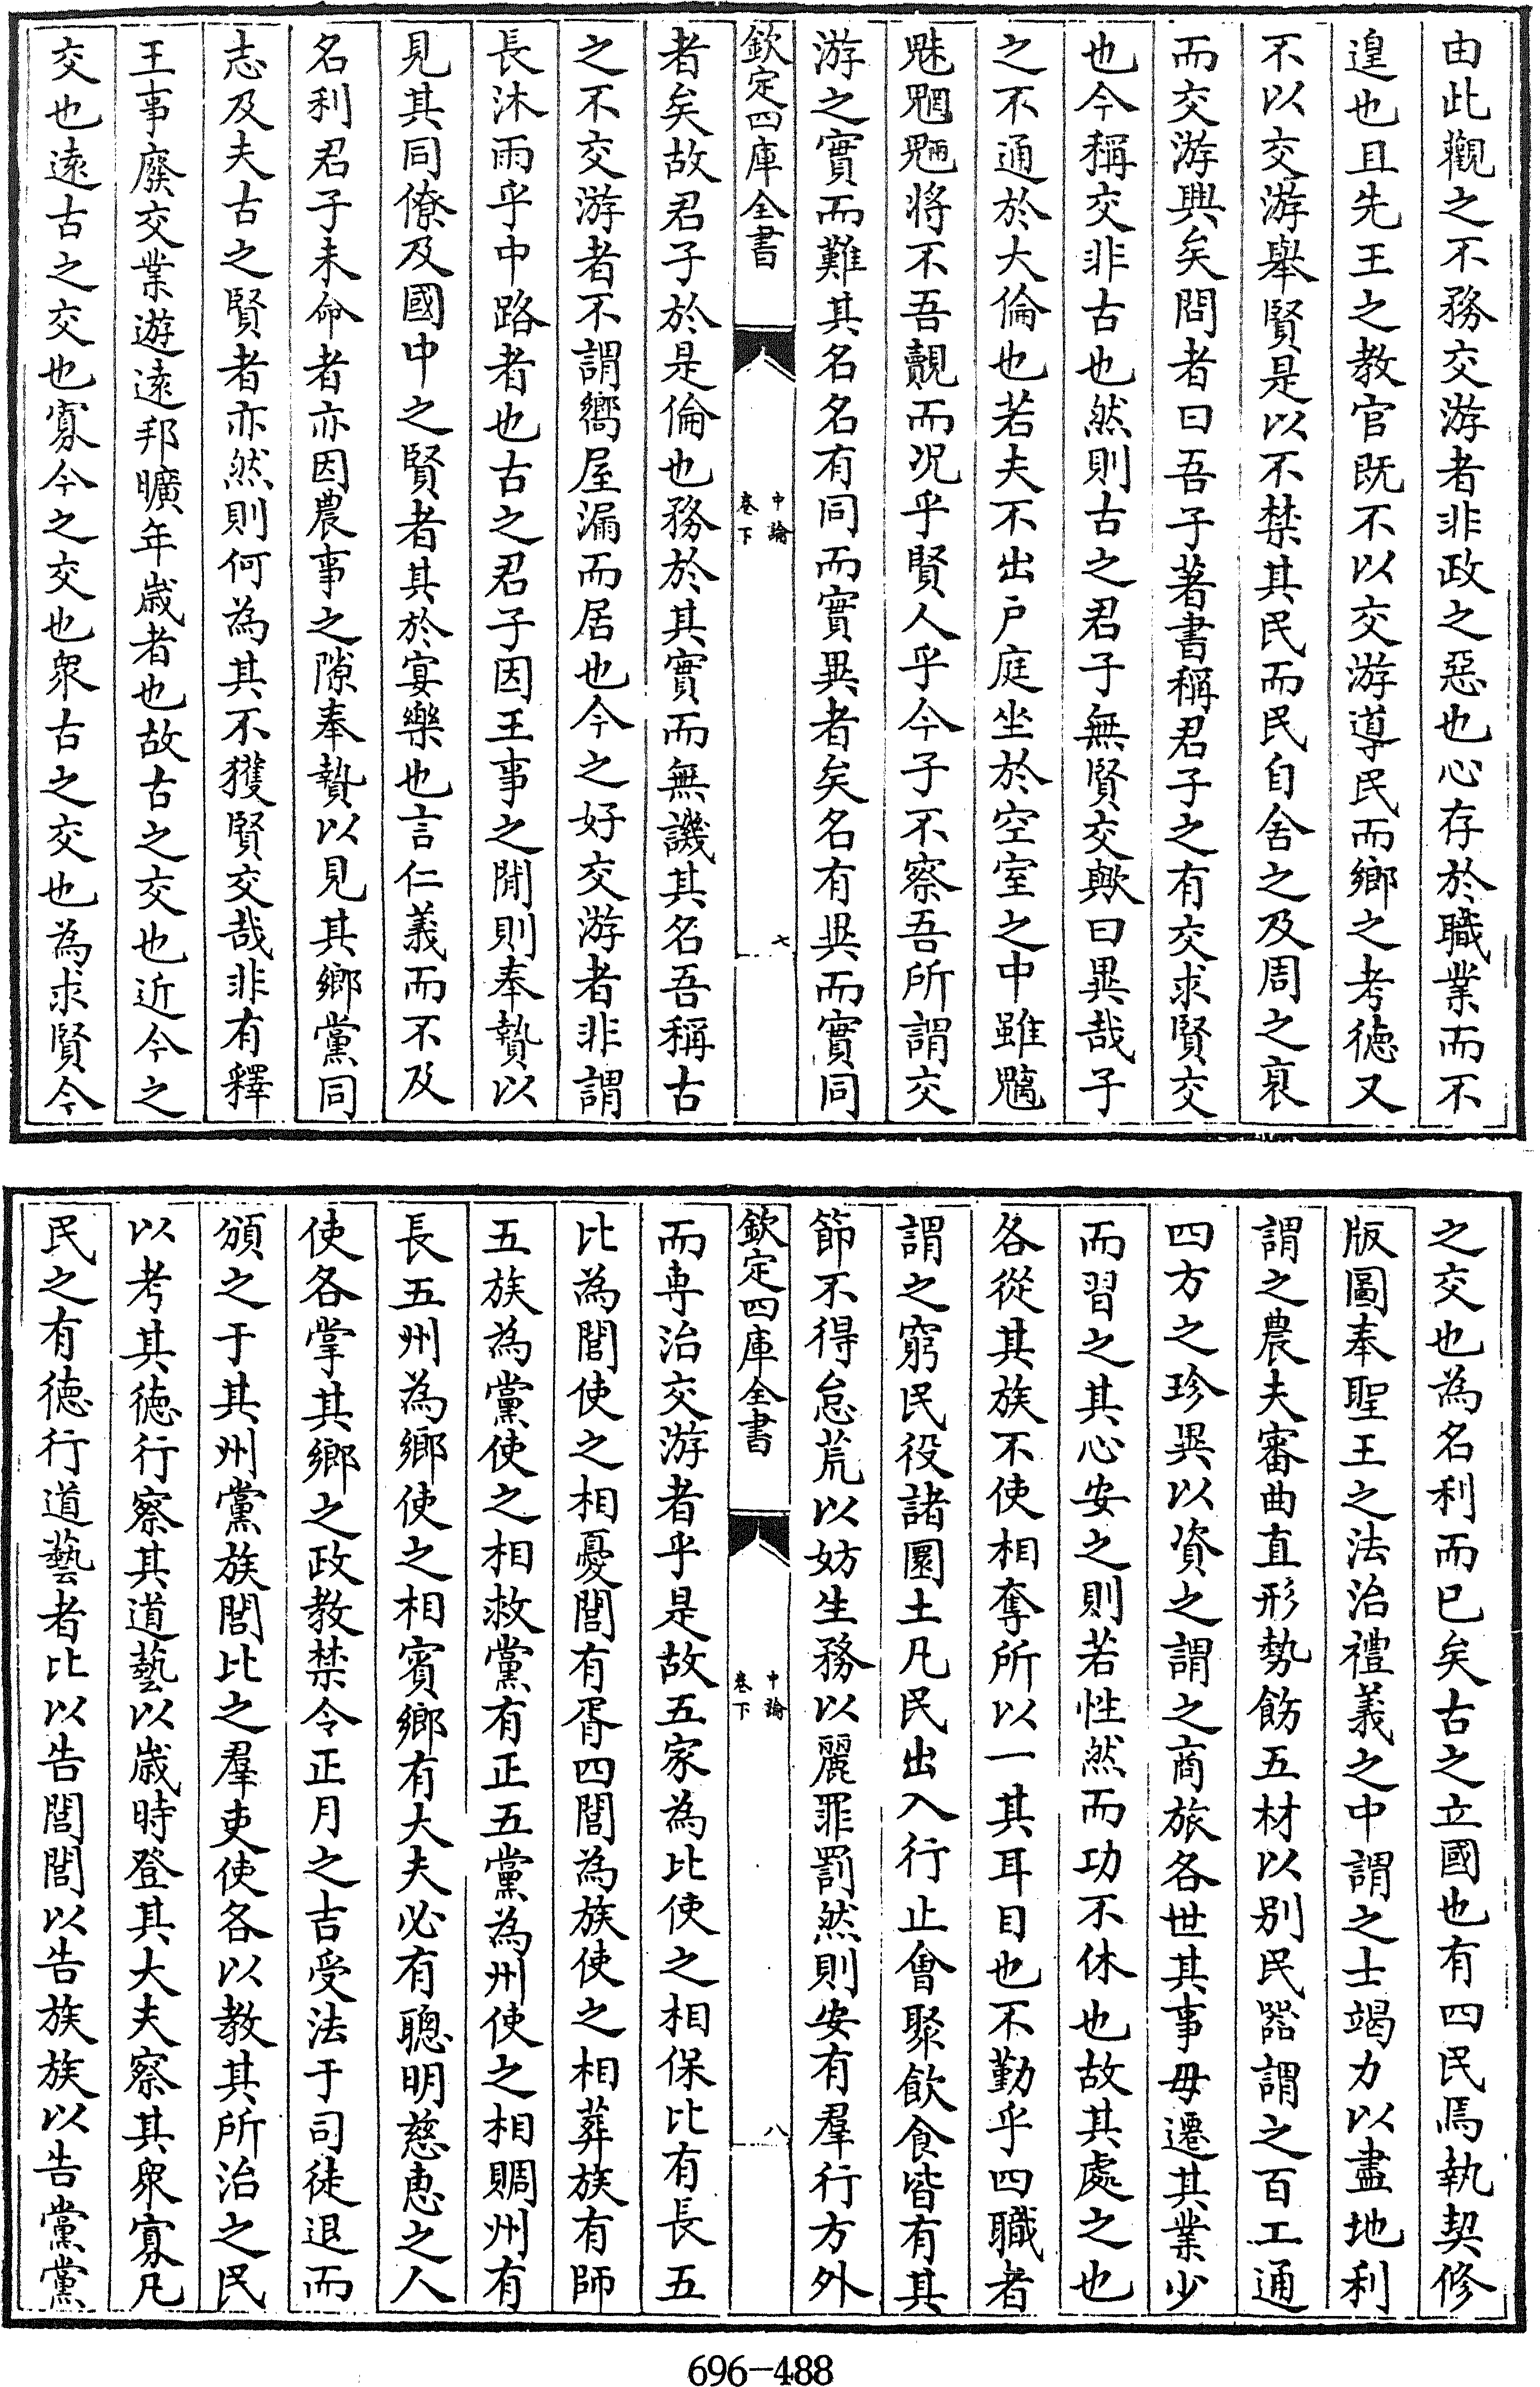 由此觀之不務交游者非政之惡也心存於職業而不
遑也且先王之教官既不以交游導民而鄉之考徳又
不以交游舉賢是以不禁其民而民自舍之及周之衰
而交游興矣問者曰吾子著書稱君子之有交求賢交
也今稱交非古也然則古之君子無賢交歟曰異哉子
之不通於大倫也若夫不出户庭坐於空室之中雖魑
魅魍魎将不吾覿而况乎賢人乎今子不察吾所謂交
游之實而難其名名有同而實異者矣名有異而實同
欽定四庫全書
中論
卷下
七
者矣故君子於是倫也務於其實而無譏其名吾稱古
之不交游者不謂嚮屋漏而居也今之好交游者非謂
長沐雨乎中路者也古之君子因王事之閒則奉贄以
見其同僚及國中之賢者其於宴樂也言仁義而不及
名利君子未命者亦因農事之隙奉贄以見其鄉黨同
志及夫古之賢者亦然則何為其不獲賢交哉非有釋
王事廢交業遊逺邦曠年歳者也故古之交也近今之
交也逺古之交也寡今之交也衆古之交也為求賢今
之交也為名利而已矣古之立國也有四民焉執契修
版圖奉聖王之法治禮義之中謂之士竭力以盡地利
謂之農夫審曲直形勢飭五材以别民器謂之百工通
四方之珍異以資之謂之商旅各世其事毋遷其業少
而習之其心安之則若性然而功不休也故其處之也
各從其族不使相奪所以一其耳目也不勤乎四職者
謂之窮民役諸圜土凡民出入行止會聚飲食皆有其
節不得怠荒以妨生務以麗罪罰然則安有羣行方外
欽定四庫全書
中論
卷下
八
而專治交游者乎是故五家為比使之相保比有長五
比為閭使之相憂閭有胥四閭為族使之相葬族有師
五族為黨使之相救黨有正五黨為州使之相賙州有
長五州為鄉使之相賓鄉有大夫必有聰明慈惠之人
使各掌其鄉之政教禁令正月之吉受法于司徒退而
頒之于其州黨族閭比之羣吏使各以教其所治之民
以考其徳行察其道藝以歳時登其大夫察其衆寡凡
民之有徳行道藝者比以告閭閭以告族族以告黨黨
696-488